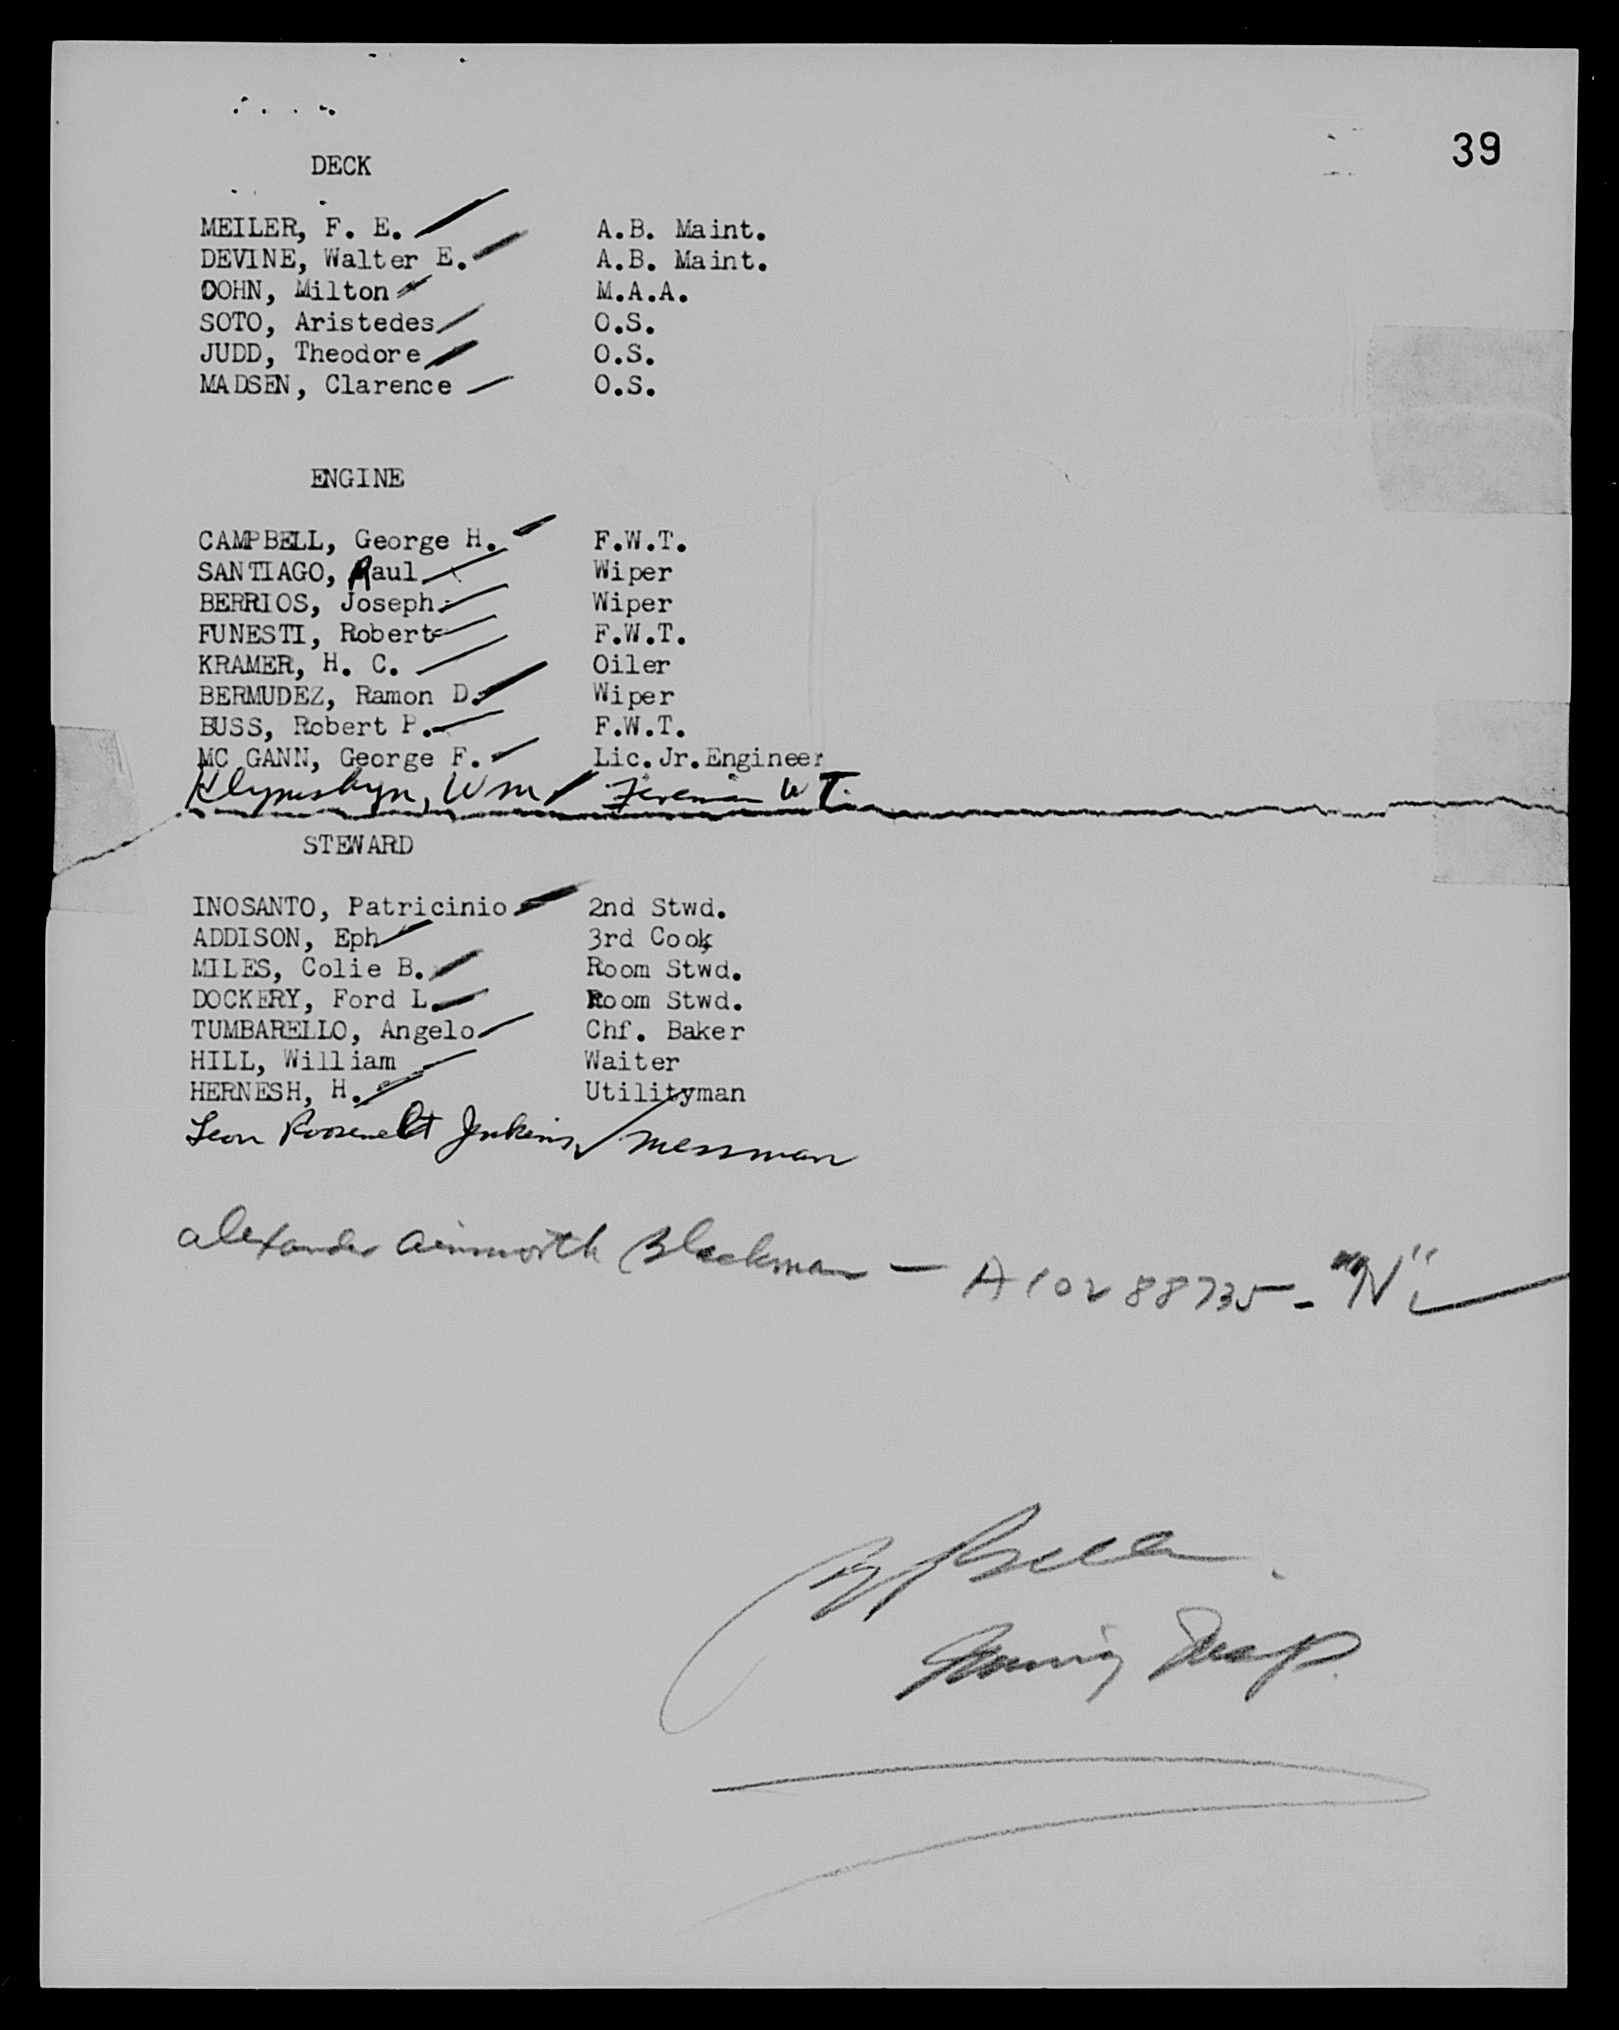 39
DECK
MEILER, F. E. A.B. Maint.
DEVINE, Walter E. A.B. Maint.
DOHN, Milton M.A.A.
SOTO, Aristedes O.S.
JUDD, Theodore O.S.
MADSEN, Clarence O.S.
ENGINE
CAMPBELL, George H. F.W.T.
SANTIAGO, Raul Wiper
BERRIOS, Joseph Wiper
FUNESTI, Robert F.W.T.
KRAMER, H. C. Oiler
BERMUDEZ, Ramon D. Wiper
BUSS, Robert P. F.W.T.
MC GANN, George F. Lic.Jr.Engineer
Wm Fireman W T.
STEWARD
INOSANTO, Patricinio 2nd Stwd.
ADDISON, Eph 3rd Cook
MILES, Colie B. Room Stwd.
DOCKERY, Ford L. Room Stwd.
TUMBARELLO, Angelo Chf. Baker
HILL, William Waiter
HERNESH, H. Utilityman
Leon Roosevelt Jenkins messman
Alexander Ainsworth Blackman — A10288735 - "N"